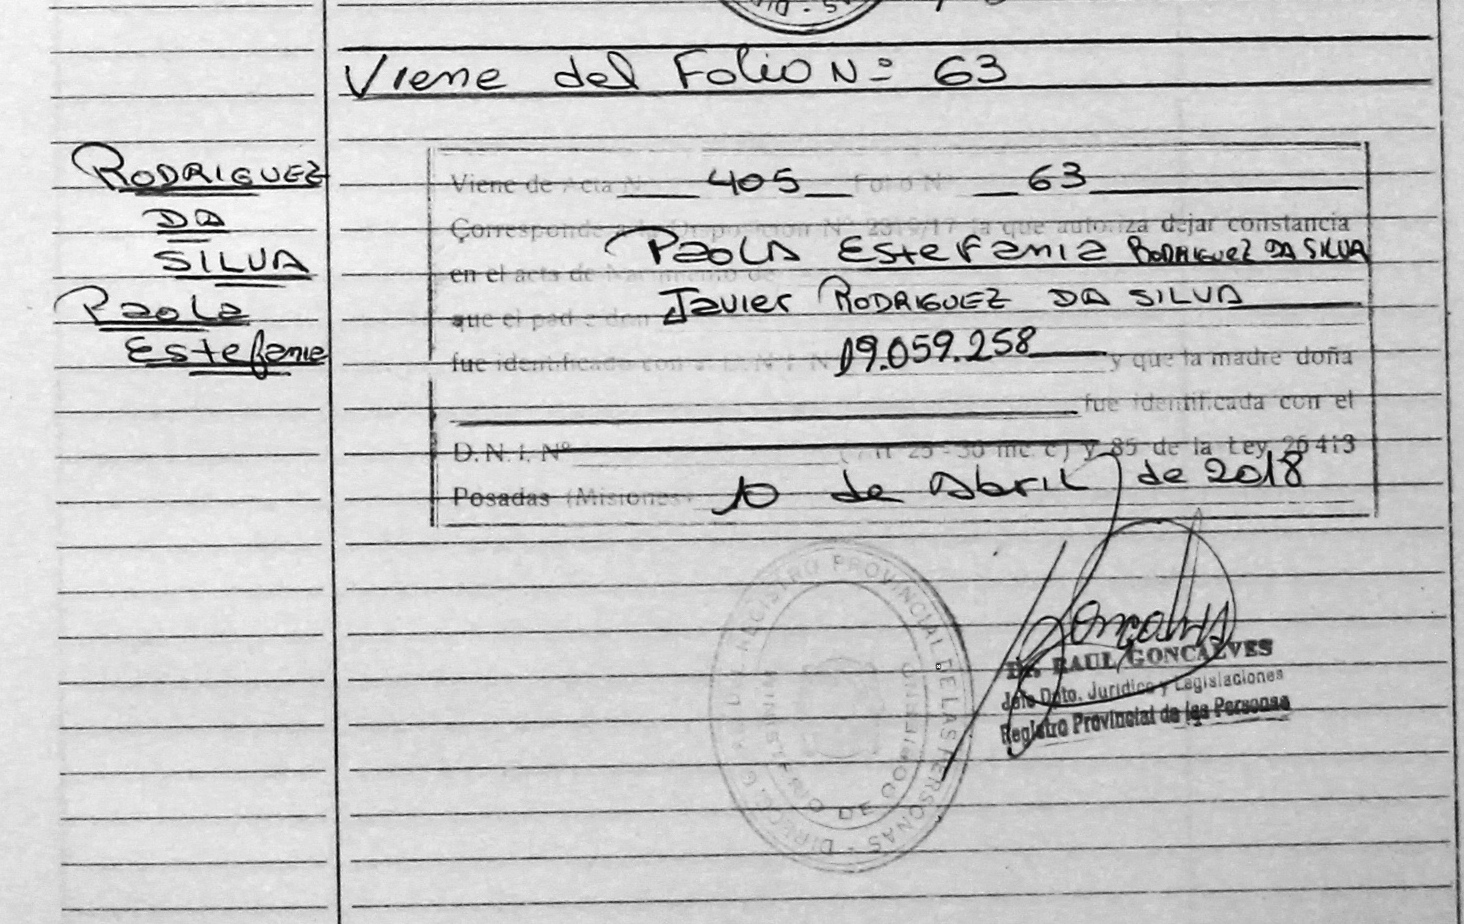 Viene del Folio Nº 63
RODRIGUEZ
DA
SILVA
Paola
Estefania
Viene de Acta Nº 405 Folio Nº 63
Corresponde a la Disposición Nº 2319/17 la que autoriza dejar constancia
Paola Estefania RODRIGUEZ DA SILVA
en el acta de Nacimiento de
Javier RODRIGUEZ DA SILVA
que el padre don
fue identificado con D.N.I. Nº 19.059.258 y que la madre doña
fue identificada con el
D.N.I. Nº 25 - 30 inc. c) y 85 de la Ley 26413
Posadas (Misiones) 10 de Abril de 2018
REGISTRO PROVINCIAL DE LAS PERSONAS
MINISTERIO DE GOBIERNO
Dr. RAUL GONCALVES
Jefe Dpto. Jurídico y Legislaciones
Registro Provincial de las Personas